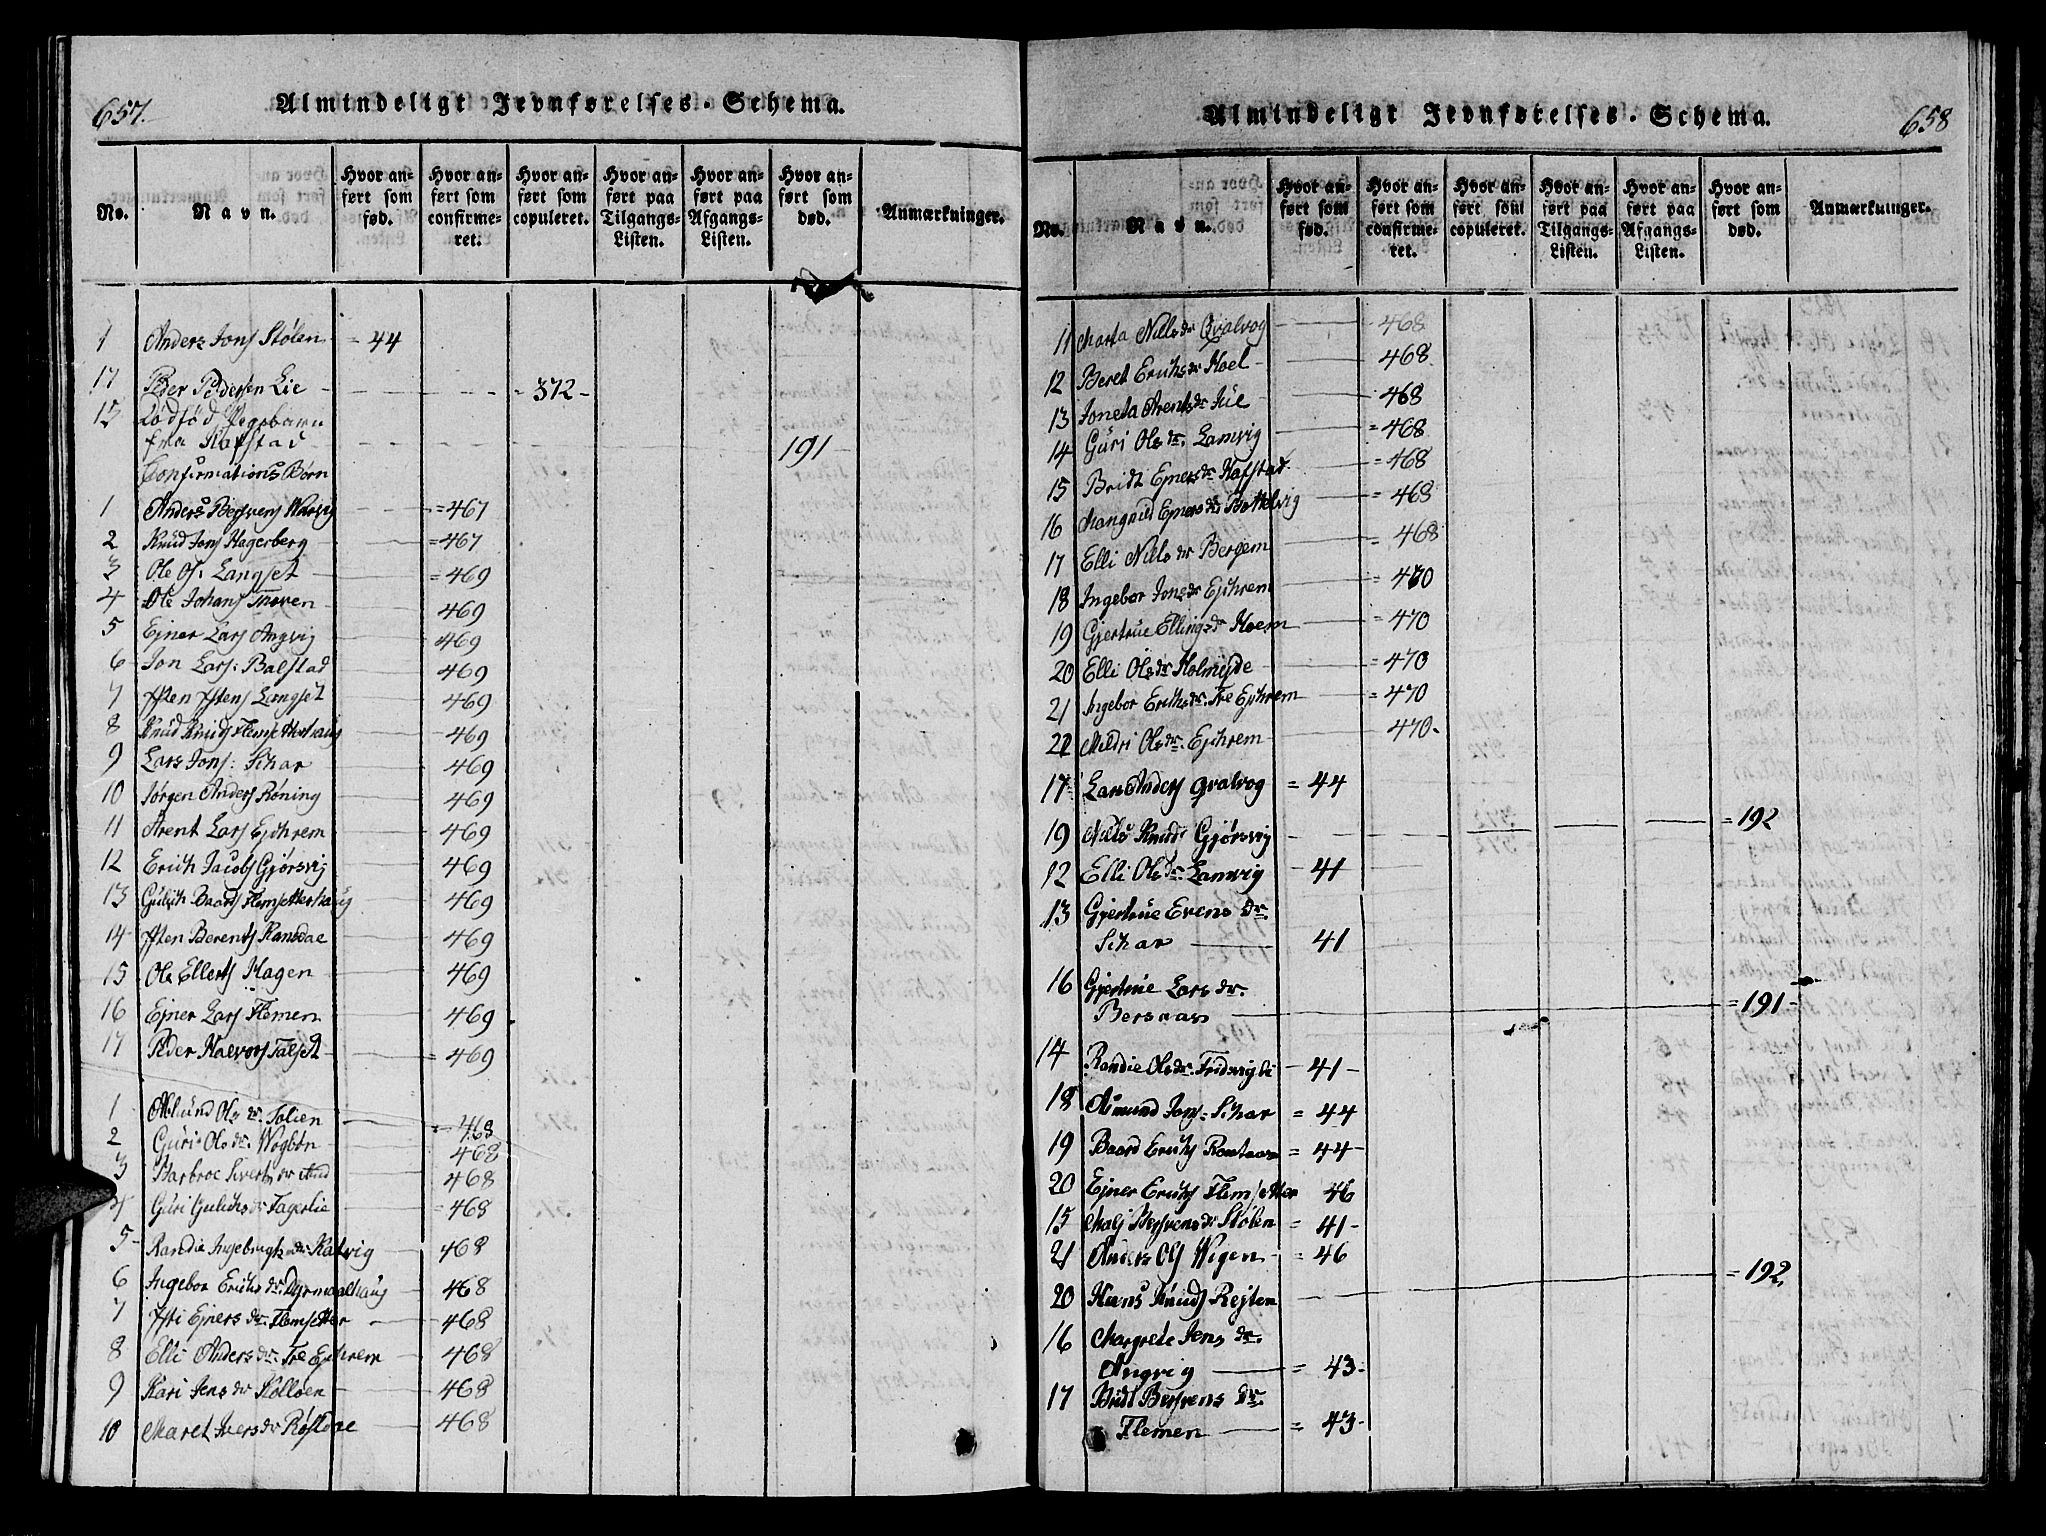 657.
Almindeligt Jevnførelses-Schema.
No.
Navn.
Hvor anført som fød.
Hvor anført som confirmeret.
Hvor anført som copuleret.
Hvor anført paa Tilgangs-Listen.
Hvor anført paa Afgangs-Listen.
Hvor anført som død.
Anmærkninger.
1 Anders Jons Stølen = 44
17 Peder Pedersen Lie = 372-
13 Dødfød Pigebarn
fra Kafstad 191
Confirmations Børn
1 Anders = 467
2 Knud Jons Hagerberg = 467
3 Ole Ols: Langset = 469
4 Ole Johans 469
5 Ejner Lars Angvig 469
6 Jon Lars: Balstad 469
7 Langset 469
8 Knud Knuds 469
9 Lars Jons: Sihar 469
10 Jørgen Anders Røning 469
11 Arent Lars Ejhrem 469
12 Erich Jacobs Gjørsvig 469
13 Gulich Baards 469
14 Berents 469
15 Ole Ellerts Hagen 469
16 Ejner Lars Flemen 469
17 Peder Halvors Talset = 469
1 Ols dr. = 468
2 Guri Ols dr. Wogbøn 468
3 Barbroe Siverts dr 468
4 Guri Gulichs dr Fagerlie = 468
5 Randie 468
6 Ingebor Erichs dr. 468
7 Ejners dr. Flemsetter 468
8 Elli Anders dr. Fre Ejhrem 468
9 Kari Jens dr 468
10 Maret Ivers dr 468
Almindeligt Jevnførelses-Schema.
658
No.
Navn.
Hvor anført som fød.
Hvor anført som confirmeret.
Hvor anført som copuleret.
Hvor anført paa Tilgangs-Listen.
Hvor anført paa Afgangs-Listen.
Hvor anført som død.
Anmærkninger.
11 Marta Nils dr Qvalvog = 468
12 Beret Erichs dr Hoel 468
13 Joneta Arents dr = 468
14 Guri Ols dr. Lamvig = 468
15 Bridt Ejners dr Kafstad = 468
16 Mangnild Ejners dr = 468
17 Elli Nils dr Bergem = 468
18 Ingebor Jons dr Ejhrem = 470
19 Gjertrue Ellings dr Hoem = 470
20 Elli Ols dr = 470
21 Ingebor Erichs dr. Fre Ejhrem = 470
22 Mildri Ols dr. Ejhrem 470.
17 Lars Anders Qvalvog = 44
19 Nils Knuds Gjørsvig = 192
12 Elli Ols dr Lamvig 41
13 Gjertrue Evens dr.
Sihar 41
16 Gjertrue Lars dr.
= 191-
14 Randie Ols dr. 41-
18 Amund Jons: Sihar = 44
19 Baard Erichs = 44-
20 Ejner Erichs Flemsetter 46
15 dr Stølen = 41-
21 Anders Ols Wegen = 46
20 Hans Knuds Rejten = 192
16 Margrete Jens dr.
Angvig = 43-
17 Bridt dr.
Flemen = 43-